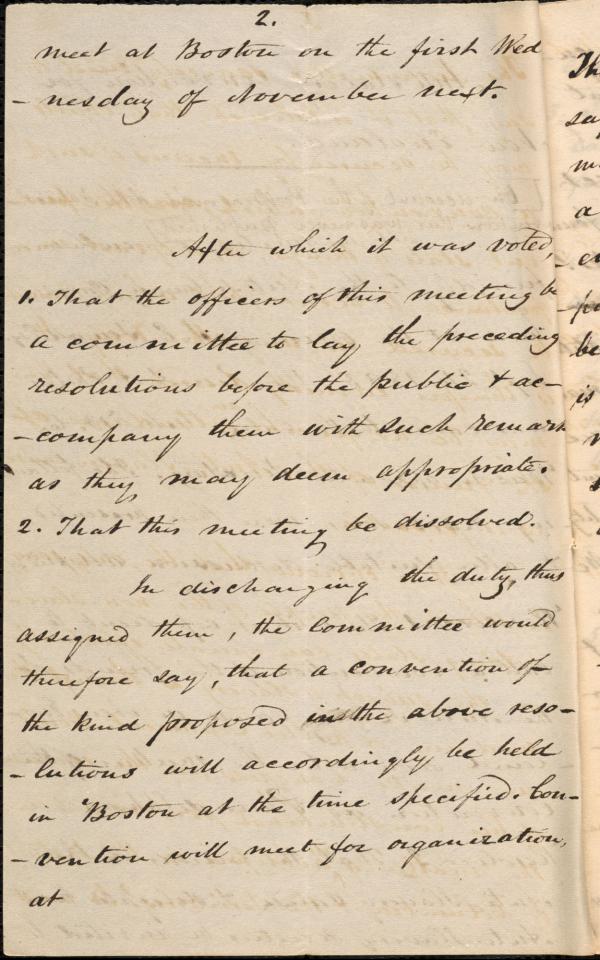 2.
meet at Boston on the first Wed
- nesday of November next.
After which it was voted,
1. That the officers of this meeting be
a committee to lay the preceding
resolutions before the public & ac-
- company them with such remark
as they may deem appropriate.
2. That this meeting be dissolved.
In discharging the duty, thus
assigned them, the Committee would
therefore say, that a convention of
the kind proposed in the above reso-
- lutions will accordingly be held
in Boston at the time specified. Con-
- vention will meet for organization,
at